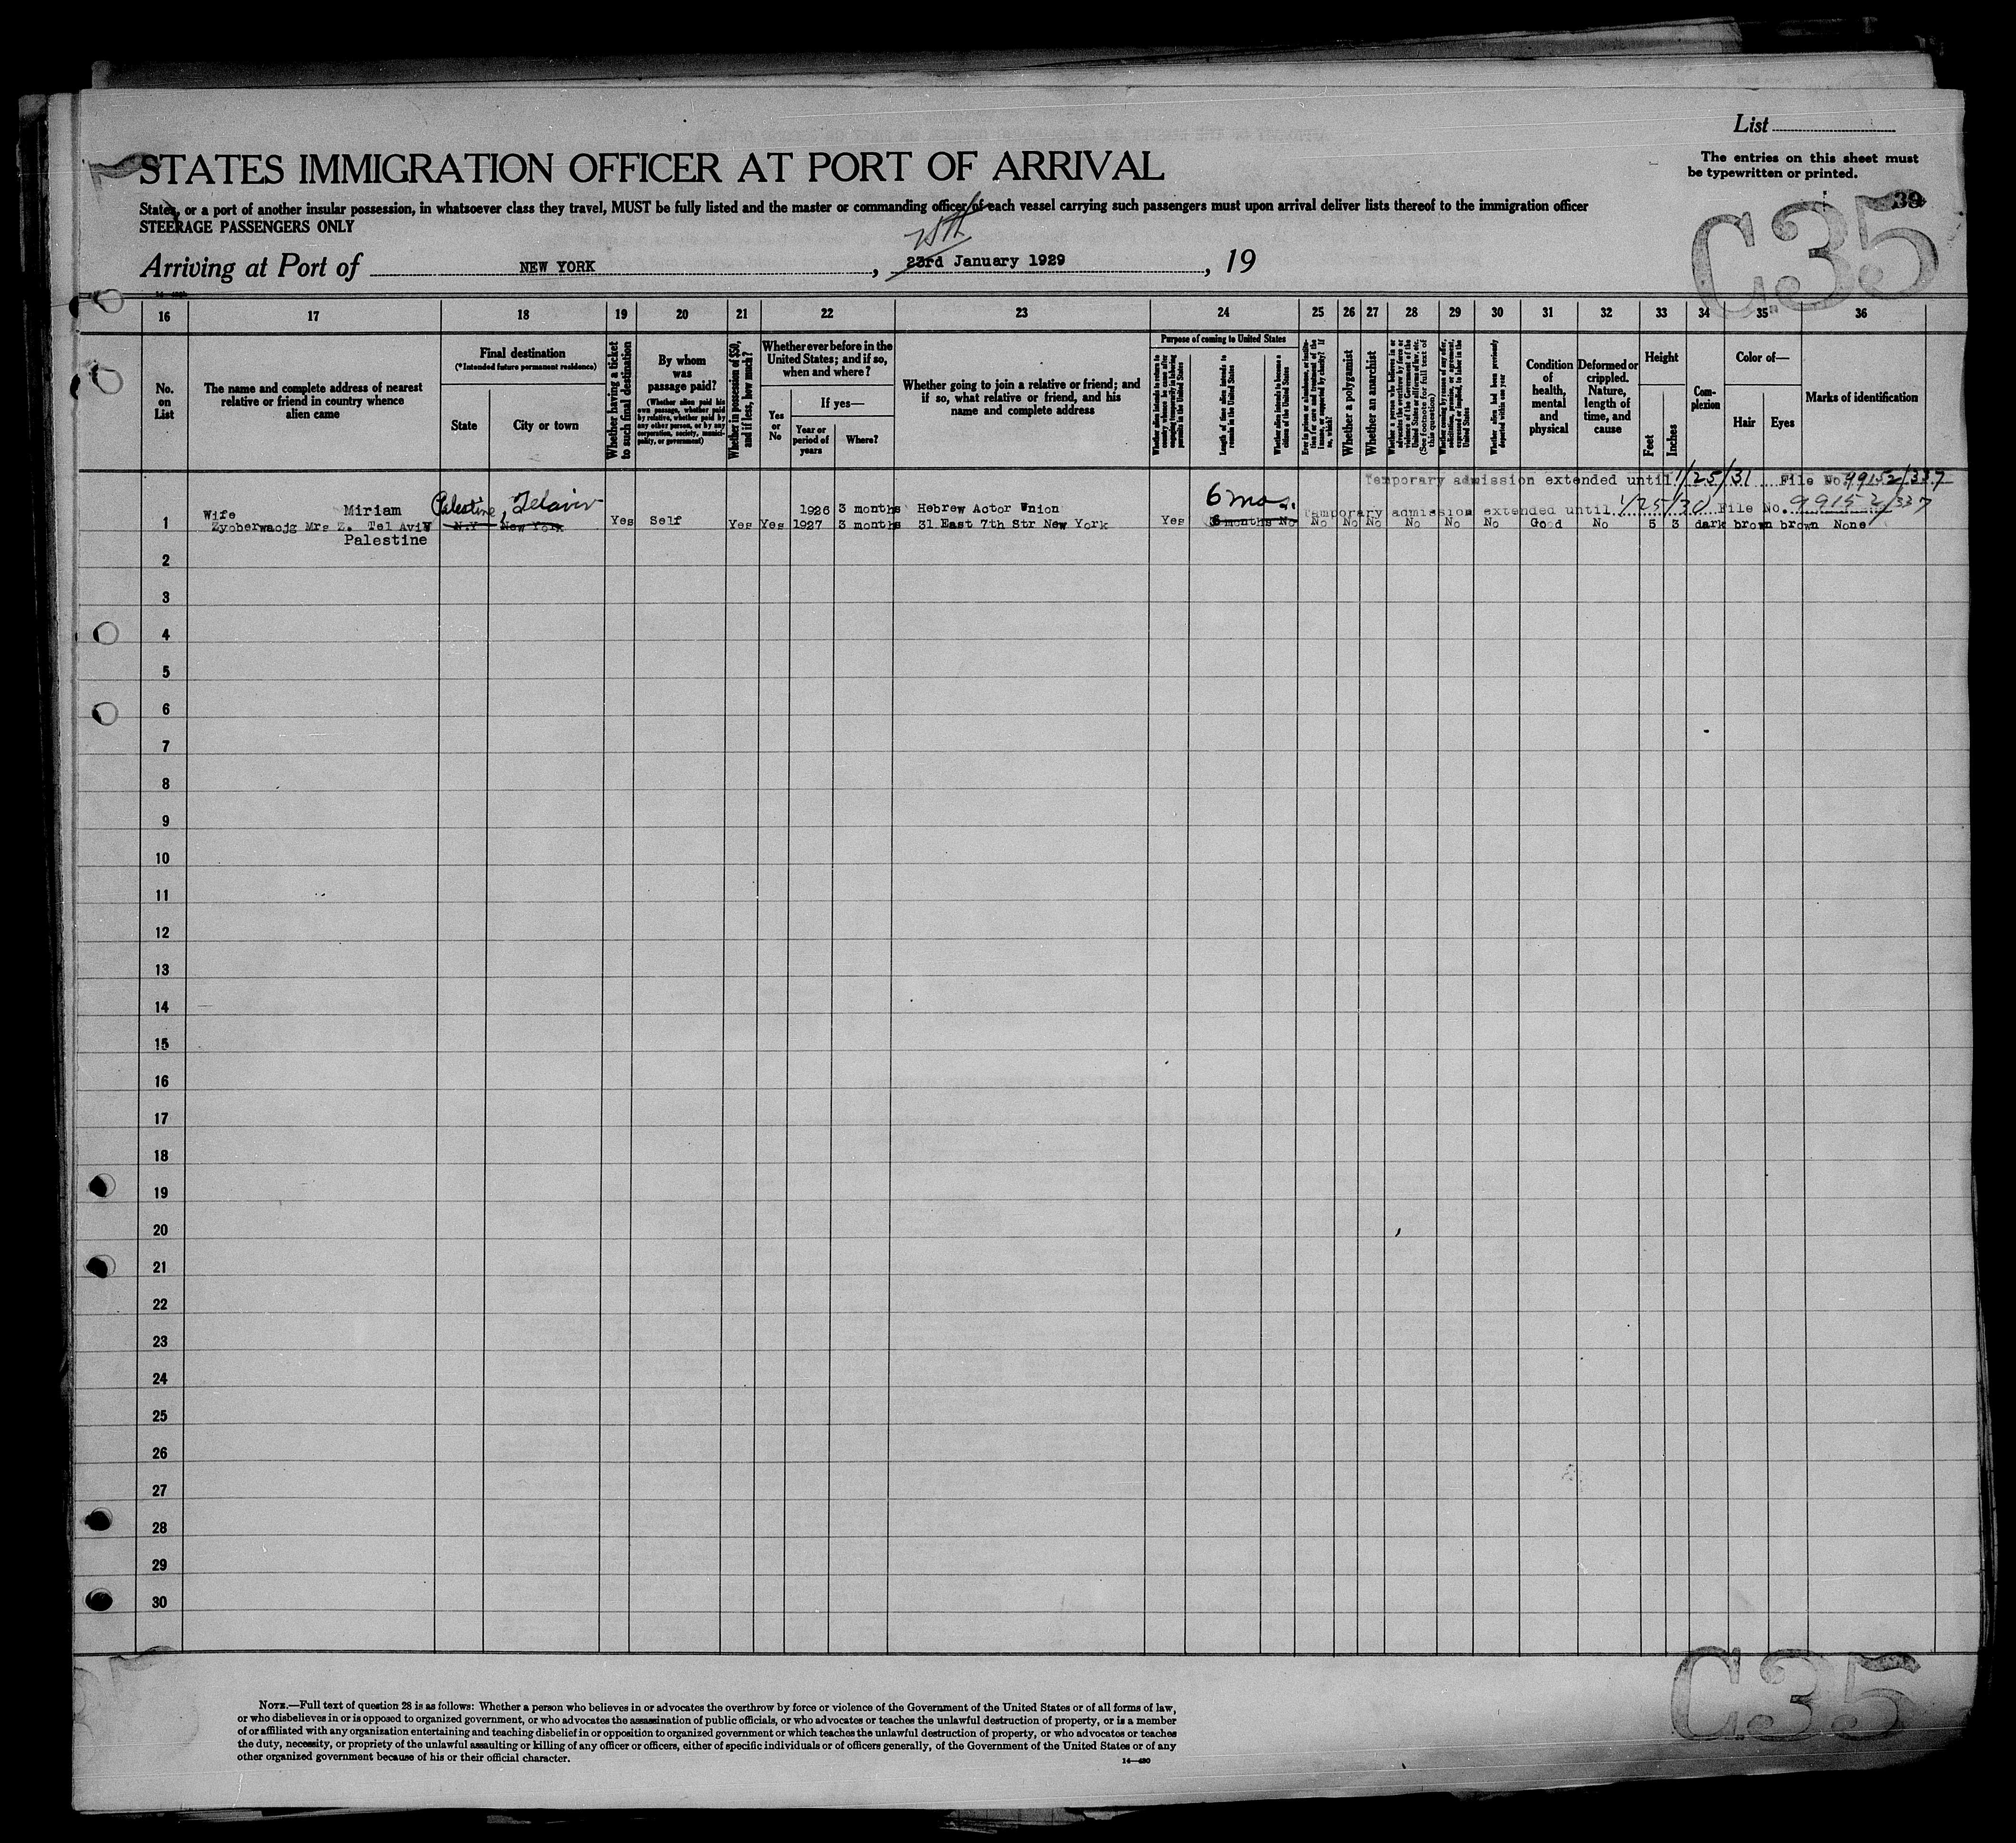 List
STATES IMMIGRATION OFFICER AT PORT OF ARRIVAL
The entries on this sheet must
be typewritten or printed.
States, or a port of another insular possession, in whatsoever class they travel, MUST be fully listed and the master or commanding officer of each vessel carrying such passengers must upon arrival deliver lists thereof to the immigration officer
39
C35
STEERAGE PASSENGERS ONLY
25th
Arriving at Port of NEW YORK, 23rd January 1929, 19
16 17 18 19 20 21 22 23 24 25 26 27 28 29 30 31 32 33 34 35 36
No. on List
The name and complete address of nearest relative or friend in country whence alien came
Final destination
(*Intended future permanent residence)
State
City or town
Whether having a ticket to such final destination
By whom was passage paid?
(Whether alien paid his own passage, whether paid by relative, whether paid by any other person, or by any corporation, society, municipality, or government)
Whether in possession of $50, and if less, how much?
Whether ever before in the United States; and if so, when and where?
Yes or No
If yes—
Year or period of years
Where?
Whether going to join a relative or friend; and if so, what relative or friend, and his name and complete address
Purpose of coming to United States
Whether alien intends to return to country whence he came after engaging temporarily in laboring pursuits in the United States
Length of time alien intends to remain in the United States
Whether alien intends to become a citizen of the United States
Ever in prison or almshouse, or institution for care and treatment of the insane, or supported by charity? If so, which?
Whether a polygamist
Whether an anarchist
Whether a person who believes in or advocates the overthrow by force or violence of the Government of the United States or all forms of law, etc. (See footnote for full text of this question)
Whether coming by reason of any offer, solicitation, promise, or agreement, expressed or implied, to labor in the United States
Whether alien had been previously deported within one year
Condition of health, mental and physical
Deformed or crippled. Nature, length of time, and cause
Height
Feet
Inches
Complexion
Color of—
Hair
Eyes
Marks of identification
Temporary admission extended until 1/25/31 File No. 99152/337
Palestine, Telaviv
6 mos.
Wife Miriam 1926 3 months Hebrew Actor Union Temporary admission extended until 1/25/30 File No. 99152/337
1 Zyoberwaojg Mrs Z. Tel Aviv N.Y New York Yes Self Yes Yes 1927 3 months 31 East 7th Str New York Yes 6 months No No No No No No No Good No 5 3 dark brown brown None
Palestine
2
3
4
5
6
7
8
9
10
11
12
13
14
15
16
17
18
19
20
21
22
23
24
25
26
27
28
29
30
C35
NOTE.—Full text of question 28 is as follows: Whether a person who believes in or advocates the overthrow by force or violence of the Government of the United States or of all forms of law,
or who disbelieves in or is opposed to organized government, or who advocates the assassination of public officials, or who advocates or teaches the unlawful destruction of property, or is a member
of or affiliated with any organization entertaining and teaching disbelief in or opposition to organized government or which teaches the unlawful destruction of property, or who advocates or teaches
the duty, necessity, or propriety of the unlawful assaulting or killing of any officer or officers, either of specific individuals or of officers generally, of the Government of the United States or of any
other organized government because of his or their official character.
14—430